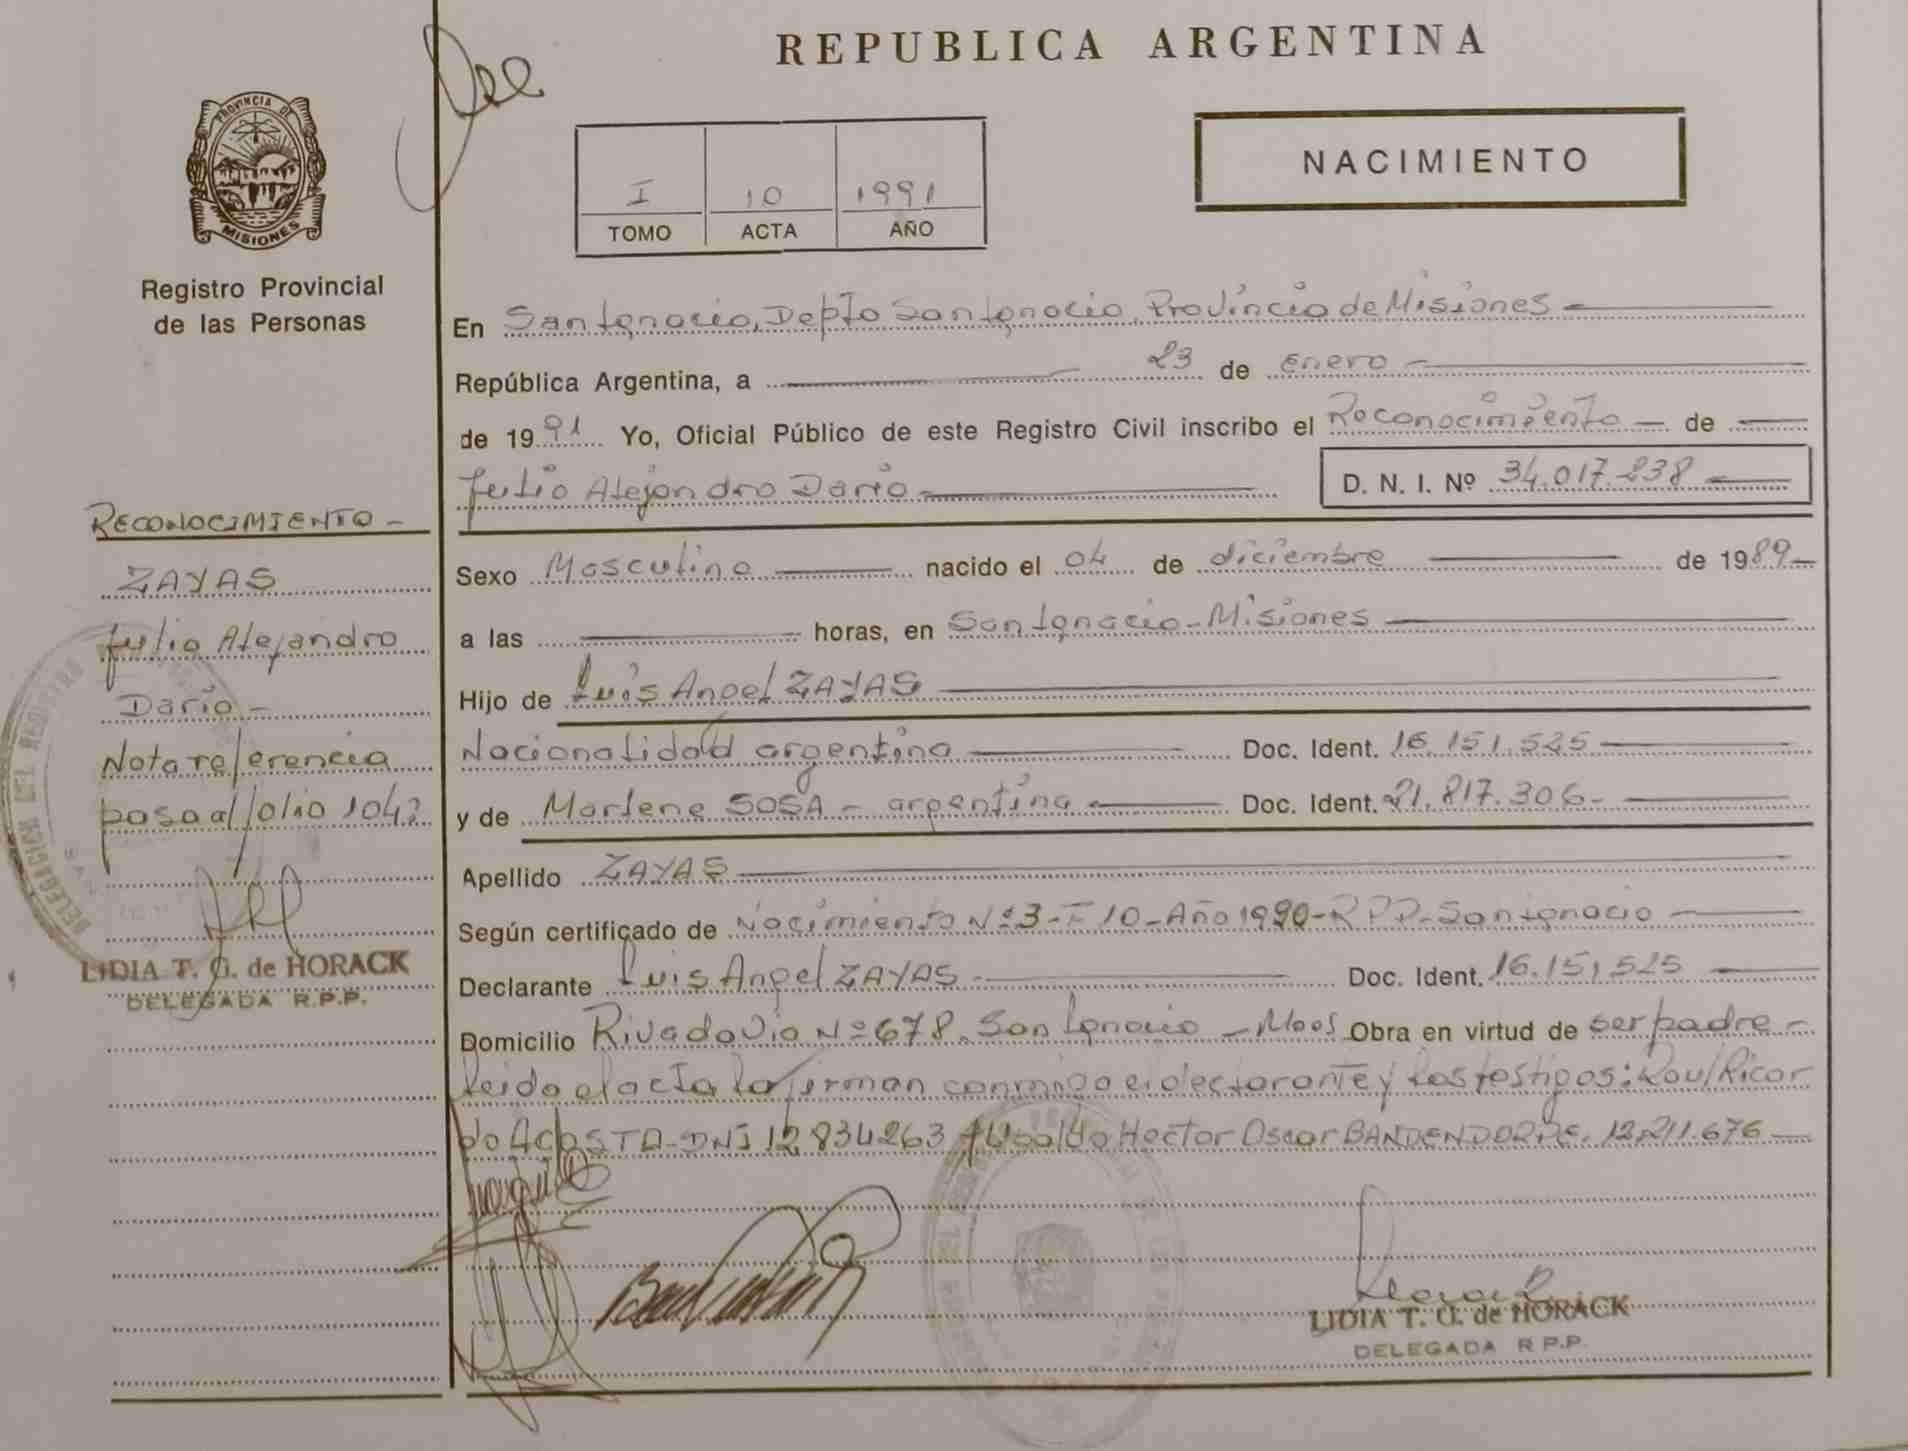 REPUBLICA ARGENTINA
PROVINCIA DE
MISIONES
NACIMIENTO
I 10 1991
TOMO ACTA AÑO
Registro Provincial
de las Personas
En San Ignacio, Depto San Ignacio, Provincia de Misiones
República Argentina, a 23 de enero
de 1991 Yo, Oficial Público de este Registro Civil inscribo el Reconocimiento de
Julio Alejandro Dario D. N. I. Nº 34.017.238
Sexo Masculino nacido el 04 de diciembre de 1989
a las horas, en San Ignacio - Misiones
Hijo de Luis Angel ZAYAS
Nacionalidad argentina Doc. Ident. 16.151.525
y de Marlene SOSA - argentina Doc. Ident. 21.817.306
Apellido ZAYAS
Según certificado de Nacimiento Nº 3 - F 10 - Año 1990 - RPP - San Ignacio
Declarante Luis Angel ZAYAS Doc. Ident. 16.151.525
Domicilio Rivadavia Nº 678, San Ignacio - Mnes Obra en virtud de ser padre -
leido el acta la firman conmigo el declarante y los testigos: Raul Ricar
do ACOSTA - DNI 12834263 Hector Oscar 12.211.676
LIDIA T. G. de HORACK
DELEGADA R.P.P.
RECONOCIMIENTO -
ZAYAS
Julio Alejandro
Dario -
Nota referencia
pasa al folio 104
LIDIA T. G. de HORACK
DELEGADA R.P.P.
DELEGACION DEL REGISTRO